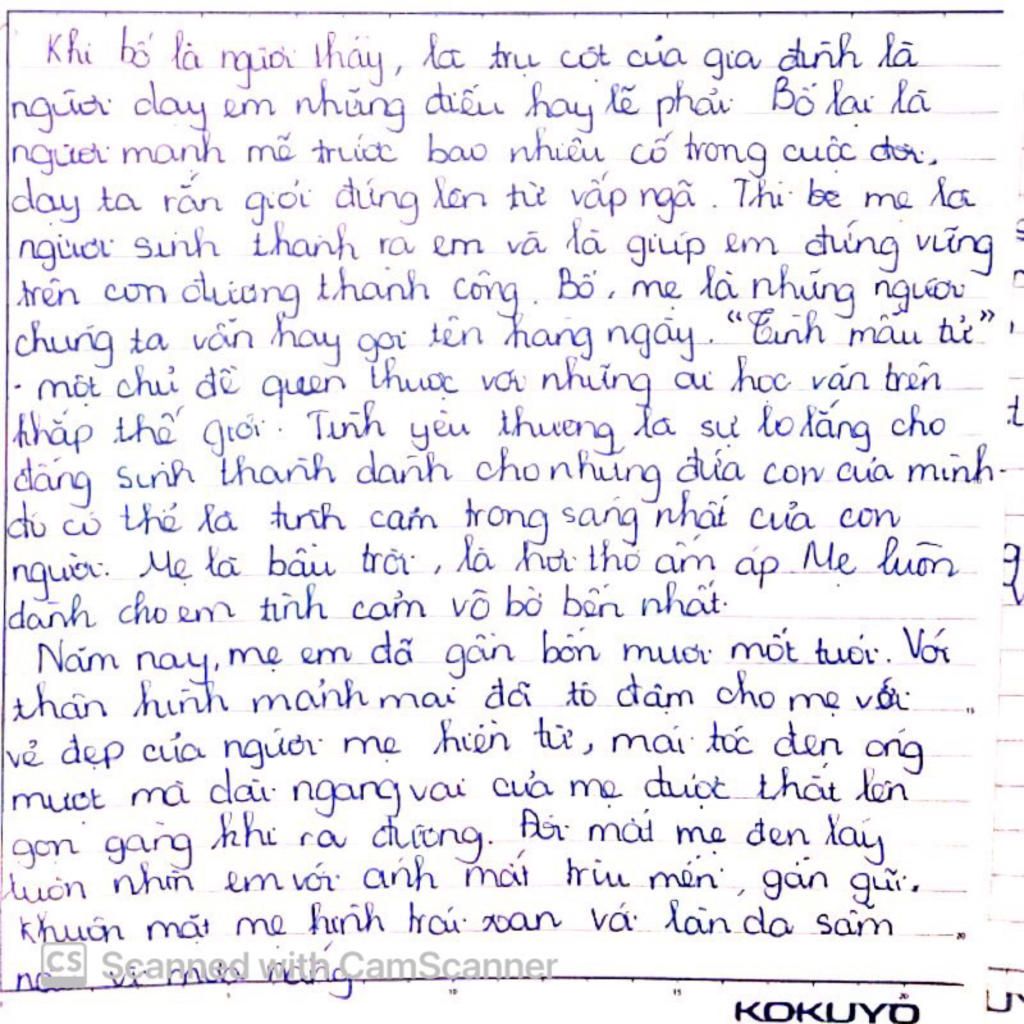 Khi bố là người thầy, là trụ cột của gia đình là
người dạy em những điều hay lẽ phải. Bố lại là
người mạnh mẽ trước bao nhiêu cố trong cuộc đời,
dạy ta rắn giỏi đứng lên từ vấp ngã. Thì be mẹ là
người sinh thành ra em và là giúp em đứng vững
trên con đường thành công. Bố, mẹ là những người
chúng ta vẫn hay gọi tên hàng ngày. "Tình mẫu tử"
- một chủ đề quen thuộc với những ai học văn trên
khắp thế giới. Tình yêu thương là sự lo lắng cho
đấng sinh thành dành cho những đứa con của mình
đó có thể là tình cảm trong sáng nhất của con
người. Mẹ là bầu trời, là hơi thở ấm áp Mẹ luôn
dành cho em tình cảm vô bờ bến nhất.
Năm nay, mẹ em đã gần bốn mươi mốt tuổi. Với
thân hình mảnh mai đã tô đậm cho mẹ với
vẻ đẹp của người mẹ hiền từ, mái tóc đen óng
mượt mà dài ngang vai của mẹ được thắt lên
gọn gàng khi ra đường. Đôi mắt mẹ đen láy
luôn nhìn em với ánh mắt trìu mến, gần gũi.
Khuôn mặt mẹ hình trái xoan và làn da sầm
vì mưa nắng
CS Scanned with CamScanner
10 15 20
KOKUYO